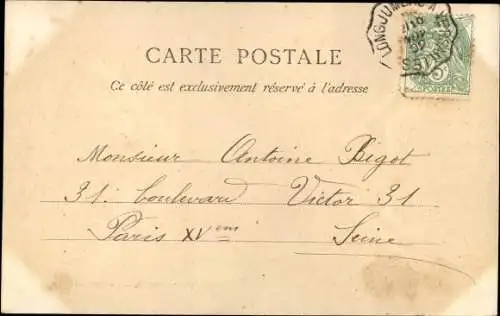 LONGJUMEAU A
CARTE POSTALE
5
POSTES
Ce côté est exclusivement réservé à l'adresse
Monsieur Antoine Bigot
31. boulevard Victor 31
Paris XVem
Seine